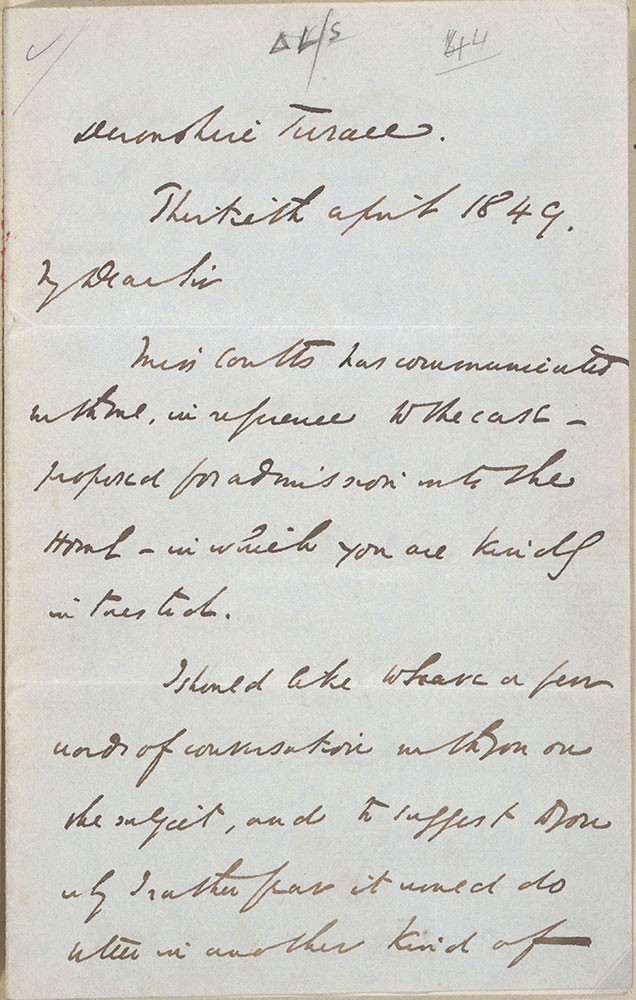 ALS 44
Devonshire Terrace.
Thirtieth April 1849.
My Dear Sir
Miss Coutts has communicated
with me, in reference to the case –
proposed for admission into the
Home – in which you are kindly
interested.
I should like to have a few
words of conversation with you on
the subject, and to suggest to you
why I rather fear it would do
better in another kind of